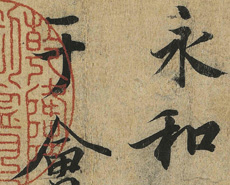 永和
于會